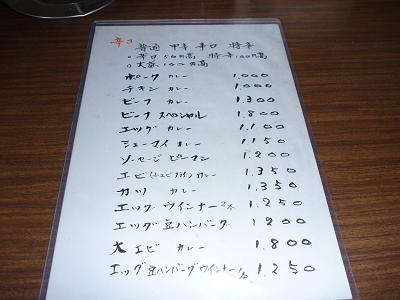 辛さ
普通 中辛 辛口 特辛
○ 辛口50円高 特辛100円高
○ 大盛100円高
ポーク カレー 1.000
チキン カレー 1.000
ビーフ カレー 1.300
ビーフ スペシャル 1.800
エッグ カレー 1.100
シューマイ カレー 1150
ソーセージ ピーマン 1.200
エビ(小エビフライ)カレー 1.350
カツ カレー 1.350
エッグ ウインナー2本 1.250
エッグ 豆ハンバーグ 1200
大エビ カレー 1.800
エッグ 豆ハンバーグ ウインナー1本 1.250